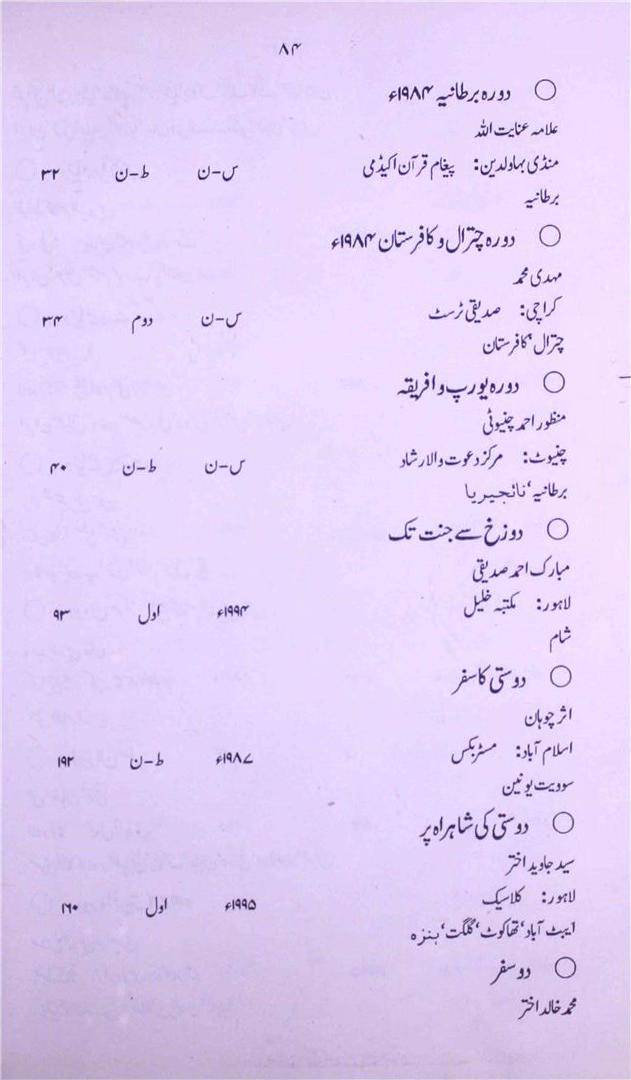 ۸۴
○ دورہ برطانیہ ۱۹۸۴ء
علامہ عنایت اللہ
منڈی بہاولدین: پیغام قرآن اکیڈمی س-ن ط-ن ۳۲
برطانیہ
○ دورہ چترال و کافرستان ۱۹۸۴ء
مہدی محمد
کراچی: صدیقی ٹرسٹ س-ن دوم ۳۴
چترال‘ کافرستان
○ دورہ یورپ و افریقہ
منظور احمد چنیوٹی
چنیوٹ: مرکز دعوت والارشاد س-ن ط-ن ۴۰
برطانیہ‘ نائجیریا
○ دوزخ سے جنت تک
مبارک احمد صدیقی
لاہور: مکتبہ خلیل ۱۹۹۴ء اول ۹۳
شام
○ دوستی کا سفر
اثر چوہان
اسلام آباد: مسٹر بکس ۱۹۸۷ء ط-ن ۱۹۲
سوویت یونین
○ دوستی کی شاہراہ پر
سید جاوید اختر
لاہور: کلاسیک ۱۹۹۵ء اول ۱۶۰
ایبٹ آباد‘ تھاکوٹ‘ گلگت‘ ہنزہ
○ دو سفر
محمد خالد اختر